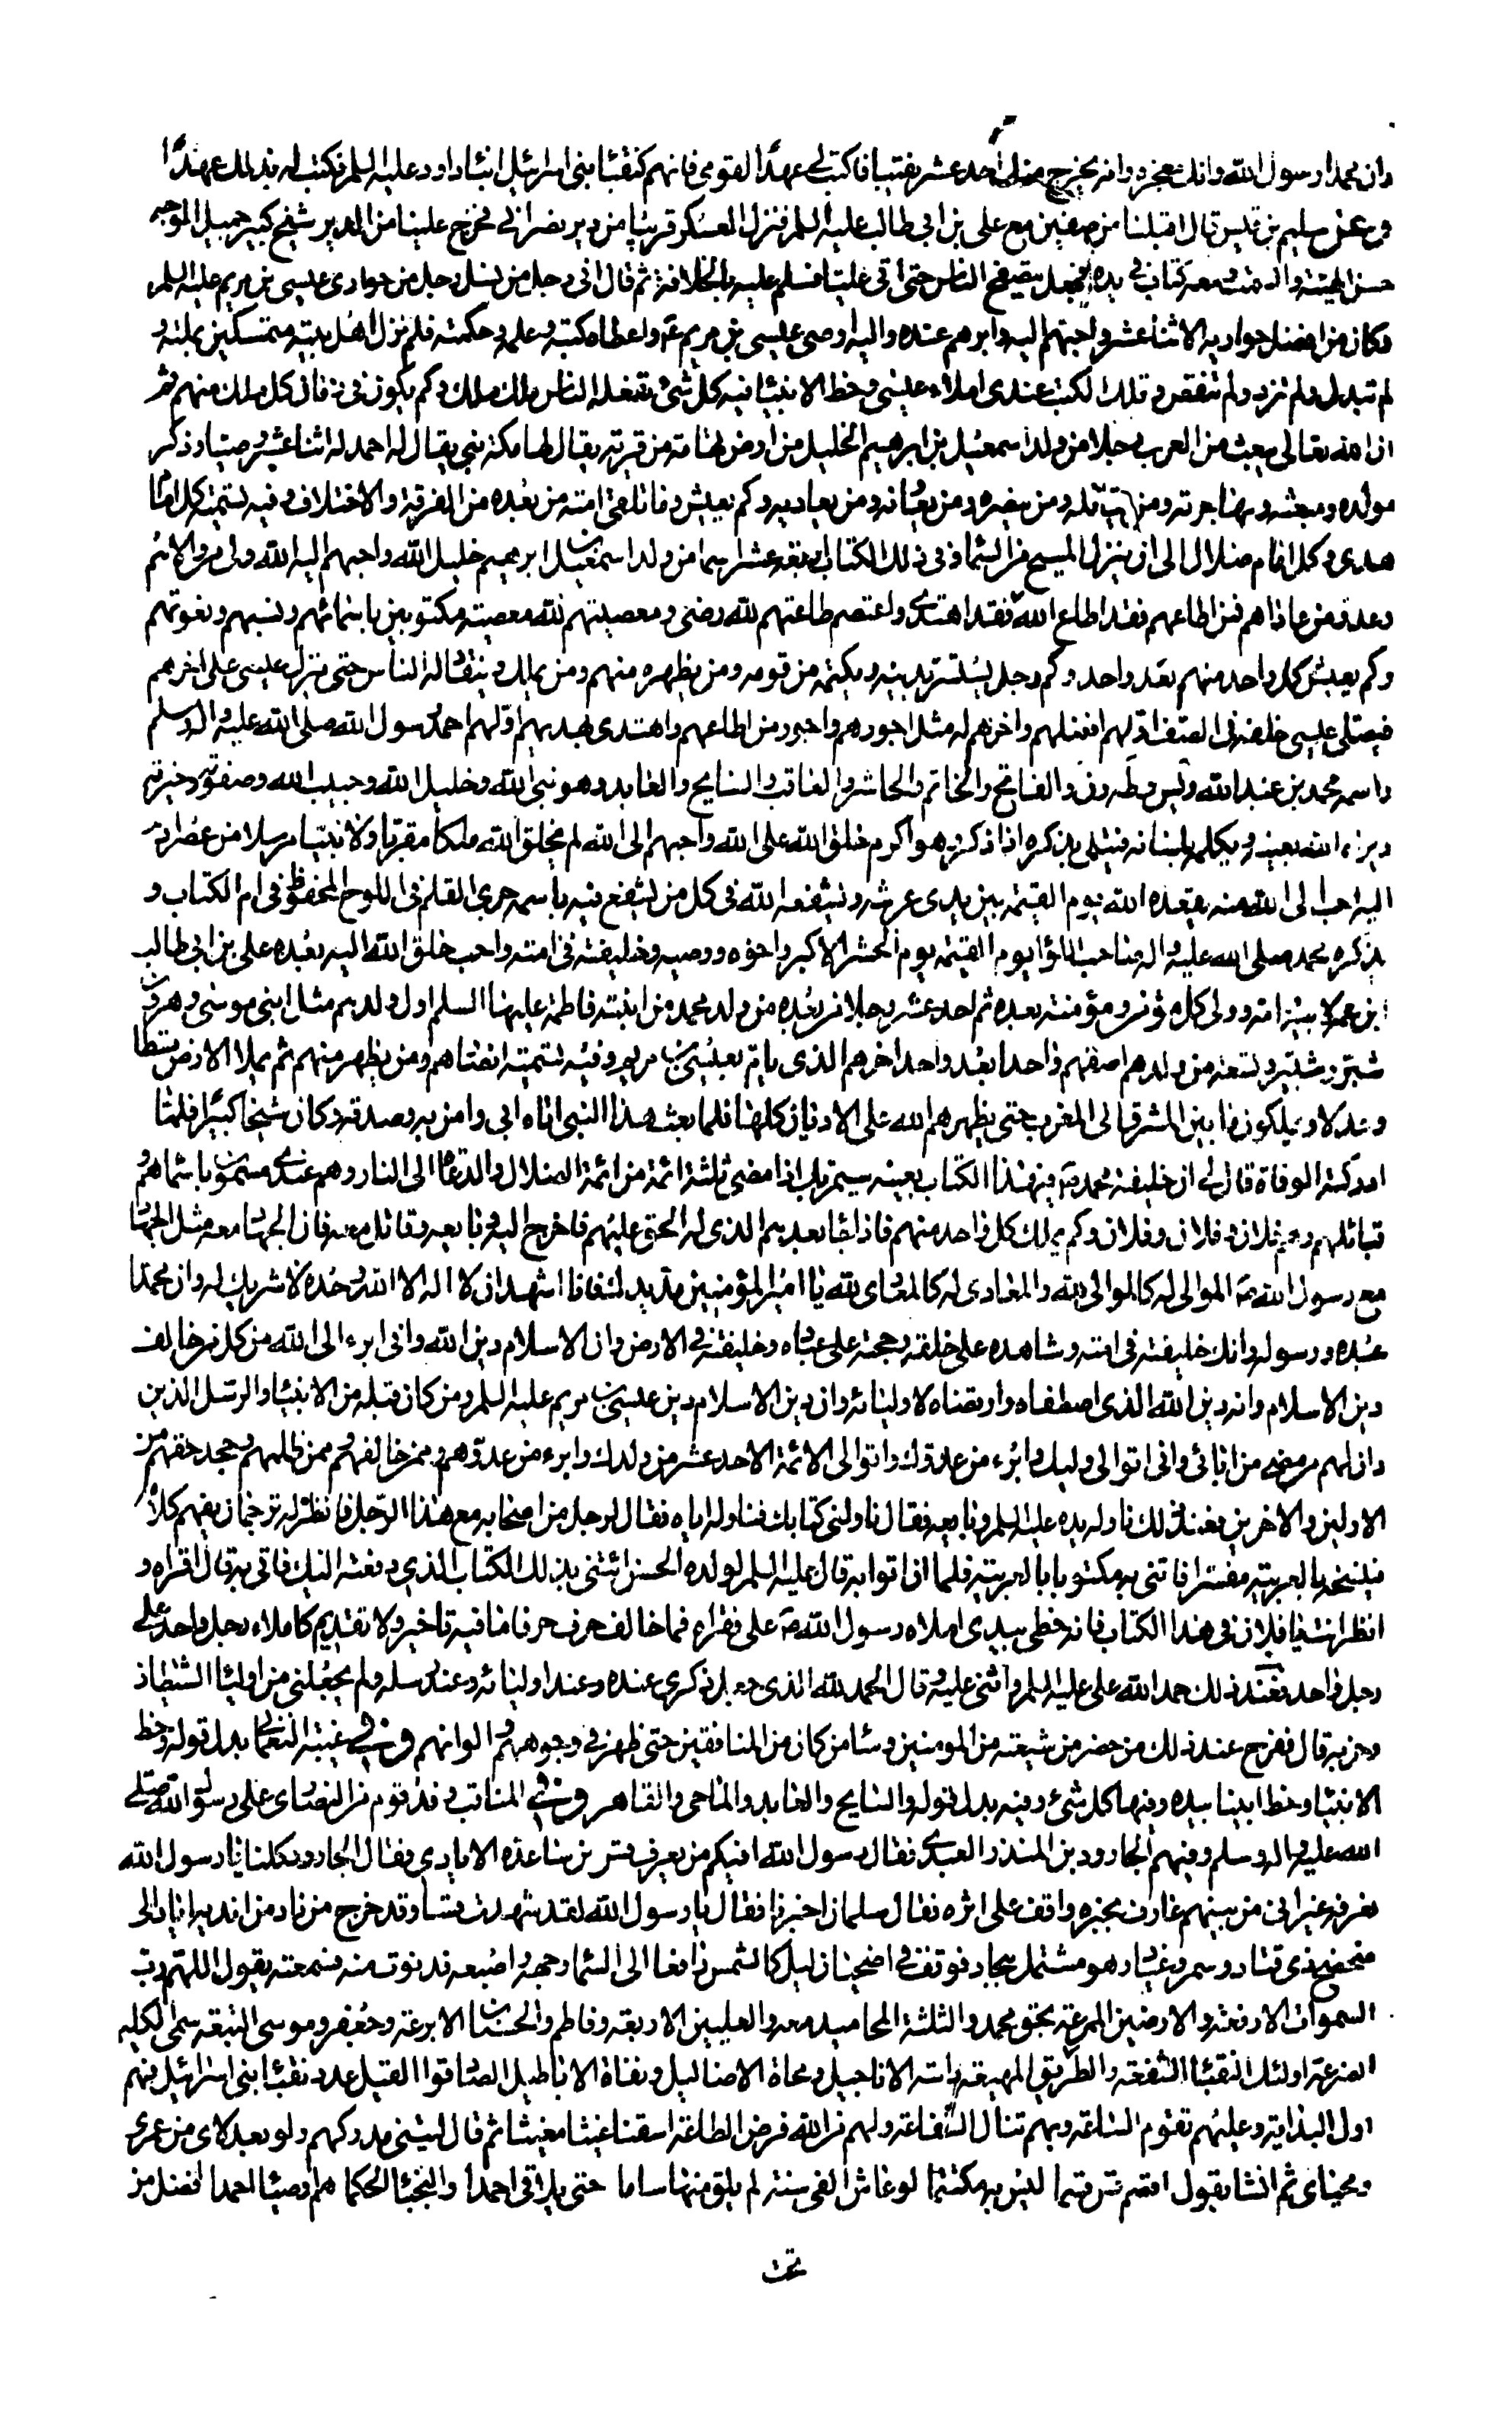 وان محمدا رسول الله وانك معجزه وانه يخرج منك احد عشر نقيبا فاكتب لي عهدا لقومي فانهم كنقباء بني اسرائيل ابناء داود عليه السلم فكتب له بذلك عهدا
وعن سليم بن قيس قال اقبلنا من صفين مع علي بن ابي طالب عليه السلم فنزل العسكر قريبا من دير نصراني فخرج علينا من الدير شيخ كبير جميل الوجه
حسن الهيئة والسمت ومعه كتاب في يده فجعل يتصفح الناس حتى اتى عليا فسلم عليه بالخلافة ثم قال اني رجل من نسل رجل من حواري عيسى بن مريم عليه السلم
وكان من افضل حواريه الاثنا عشر واحبهم اليه وابرهم عنده واليه اوصى عيسى بن مريم ع واعطاه كتبه وعلمه وحكمته فلم تزل اهل بيته متمسكين بملته و
لم تبدل ولم تزد ولم تنقص وتلك الكتب عندي املاء عيسى وخط الانبياء فيه كل شئ تفعله الناس ملك ملك وكم يكون في زمان كل ملك منهم ثم
ان الله تعالى يبعث من العرب رجلا من ولد اسمعيل بن ابرهيم الخليل من ارض تهامة من قرية يقال لها مكة نبي يقال له احمد له اثنا عشر وصيا وذكر
مولده ومبعثه ومهاجرته ومن يقاتله ومن ينصره ومن يعانه ومن يعاديه وكم يعيش وما تلقى امته من بعده من الفرقة والاختلاف وفيه تسمية كل امام
هدى وكل امام ضلال الى ان ينزل المسيح من السماء وفي ذلك الكتاب اربعة عشر اسما من ولد اسمعيل بن ابرهيم خليل الله واحبهم اليه الله ولي من والاهم
وعدو من عاداهم فمن اطاعهم فقد اطاع الله فقد اهتدى واعتصم طاعتهم لله رضى ومعصيتهم لله معصية مكتوبين باسمائهم ونسبهم ونعوتهم
وكم يعيش كل واحد منهم بعد واحد وكم رجل يستتر بدينه ويكتمه من قومه ومن يظهره منهم ومن يملك وينقاد له الناس حتى ينزل عيسى على اخرهم
فيصلى عيسى خلفه في الصف اولهم افضلهم واخرهم له مثل اجورهم واجور من اطاعهم واهتدى بهديهم اولهم احمد رسول الله صلى الله عليه واله وسلم
واسمه محمد بن عبد الله ويس وطه ون والفاتح والخاتم والحاشر والعاقب والسايح والعابد وهو نبي الله وخليل الله وحبيب الله وصفوته وخيرته
ويراه الله بعينه ويكلمه بلسانه فيتلى بذكره اذا ذكر وهو اكرم خلق الله على الله واحبهم الى الله لم يخلق الله ملكا مقربا ولا نبيا مرسلا من عصر ادم
اليه احب الى الله منه يقعده الله يوم القيمة بين يدي عرشه ويشفعه الله في كل من يشفع فيه باسمه جرى القلم في اللوح المحفوظ في ام الكتاب و
بذكره محمد صلى الله عليه واله صاحب اللواء يوم القيمة يوم الحشر الاكبر واخوه ووصيه وخليفته في امته واحب خلق الله اليه بعده علي بن ابي طالب
ابن عمه لابيه وامه وولي كل مؤمن ومؤمنة بعده ثم احد عشر رجلا من بعده من ولد محمد من ابنته فاطمة عليهما السلم اول ولدهم مثال ابني موسى وهرون
شبر وشبير وتسعة من ولدهم اصفهم واحدا بعد واحد اخرهم الذي يأتم بعيسى بن مريم وفيه تسمية انصارهم ومن يظهر منهم ثم يملأ الارض قسطا
وعدلا ويملكون ما بين المشرق الى المغرب حتى يظهرهم الله على الاديان كلها فلما بعث هذا النبي اتاه ابي وامن به وصدقه وكان شيخا كبيرا فلما
ادركته الوفاة قال لي ان خليفة محمد ص في هذا الكتاب بعينه سيمر بك اذا مضى ثلثة ائمة من ائمة الضلال والدعاة الى النار وهم عندي مسمون باسمائهم و
قبائلهم وهم فلان وفلان وفلان وكم يملك كل واحد منهم فاذا جاء بعدهم الذي له الحق عليهم فاخرج اليه وبايعه وقاتل معه فان الجهاد معه مثل الجهاد
مع رسول الله ص الموالي له كالموالي لله والمعادي له كالمعادي لله يا امير المؤمنين مد يدك فانا اشهد ان لا اله الا الله وحده لا شريك له وان محمدا
عبده ورسوله وانك خليفته في امته وشاهده على خلقه وحجته على عباده وخليفته في الارض وان الاسلام دين الله واني ابرء الى الله من كل من خالف
دين الاسلام وانه دين الله الذي اصطفاه وارتضاه لاوليائه وان دين الاسلام دين عيسى بن مريم عليه السلم ومن كان قبله من الانبياء والرسل الذين
دان لهم من مضى من ابائي واني اتوالى وليك وابرء من عدوك واتوالى الائمة الاحد عشر من ولدك وابرء من عدوهم وممن خالفهم وممن ظلمهم وجحد حقهم من
الاولين والاخرين فعند ذلك ناوله يده عليه السلم وبايعه فقال ناولني كتابك فناوله اياه فقال لرجل من اصحابه مع هذا الرجل فانظر له ترجمان يفهم كلامه
فينسخه بالعربية مفسرا فأتني به مكتوبا بالعربية فلما ان اتوا به قال عليه السلم لولده الحسن ائتني بذلك الكتاب الذي دفعته اليك فاتى به قال اقراه و
انظر انت يا فلان في هذا الكتاب فانه خطي بيدي املاه رسول الله ص علي فقراه فما خالف حرف حرفا ما فيه تاخير ولا تقديم كاملاء رجل واحد على
رجل واحد فعند ذلك حمد الله علي عليه السلم واثنى عليه وقال الحمد لله الذي جعل ذكري عنده وعند اوليائه وعند رسله ولم يجعلني من اولياء الشيطان
وحزبه قال ففرح عند ذلك من حضر من شيعته من المومنين وساء من كان من المنافقين حتى ظهر في وجوههم والوانهم وفي غيبة النعماني بدل قوله وخط
الانبياء وخط ابينا بيده وفيها كل شئ وفيه بدل قوله والسايح والعابد والماحي والقاهر وفي المناقب وفد قوم من النصارى على رسول الله صلى
الله عليه واله وسلم وفيهم الجارود بن المنذر العبدي فقال رسول الله افيكم من يعرف قس بن ساعدة الايادي فقال الجارود كلنا يا رسول الله
نعرفه غير اني من بينهم عارف بخبره واقف على اثره فقال سلمان اخبرنا فقال يا رسول الله لقد شهدت قسا وقد خرج من ناد من اندية اياد الى
صحصح ذي قتاد وسمر وغياد وهو مشتمل بنجاد فوقف في اضحيان ليل كالشمس رافعا الى السماء وجهه واصبعه فدنوت منه فسمعته يقول اللهم رب
السموات الارفعة والارضين الممرعة بحق محمد والثلثة المحاميد معه والعليين الاربعة وفاطم والحسنان الابرعة وجعفر وموسى التبعة سمي الكليم
الضرعة اولئك النقباء الشفعة والطريق المهيعة راسة الاناجيل ومحاة الاضاليل ونفاة الاباطيل الصادقوا القيل عدد نقباء بني اسرائيل فهم
اول البداية وعليهم تقوم الساعة وبهم تنال الشفاعة ولهم من الله فرض الطاعة اسقنا غيثا مغيثا ثم قال ليتني مدركهم ولو بعد لاي من عمري
ومحياي ثم انشا يقول اقسم قس قسما ليس به مكتتما لو عاش الفي سنة لم يلق منها ساما حتى يلاقي احمدا والنجباء الحكما هم اوصياء احمدا افضل من
تمت